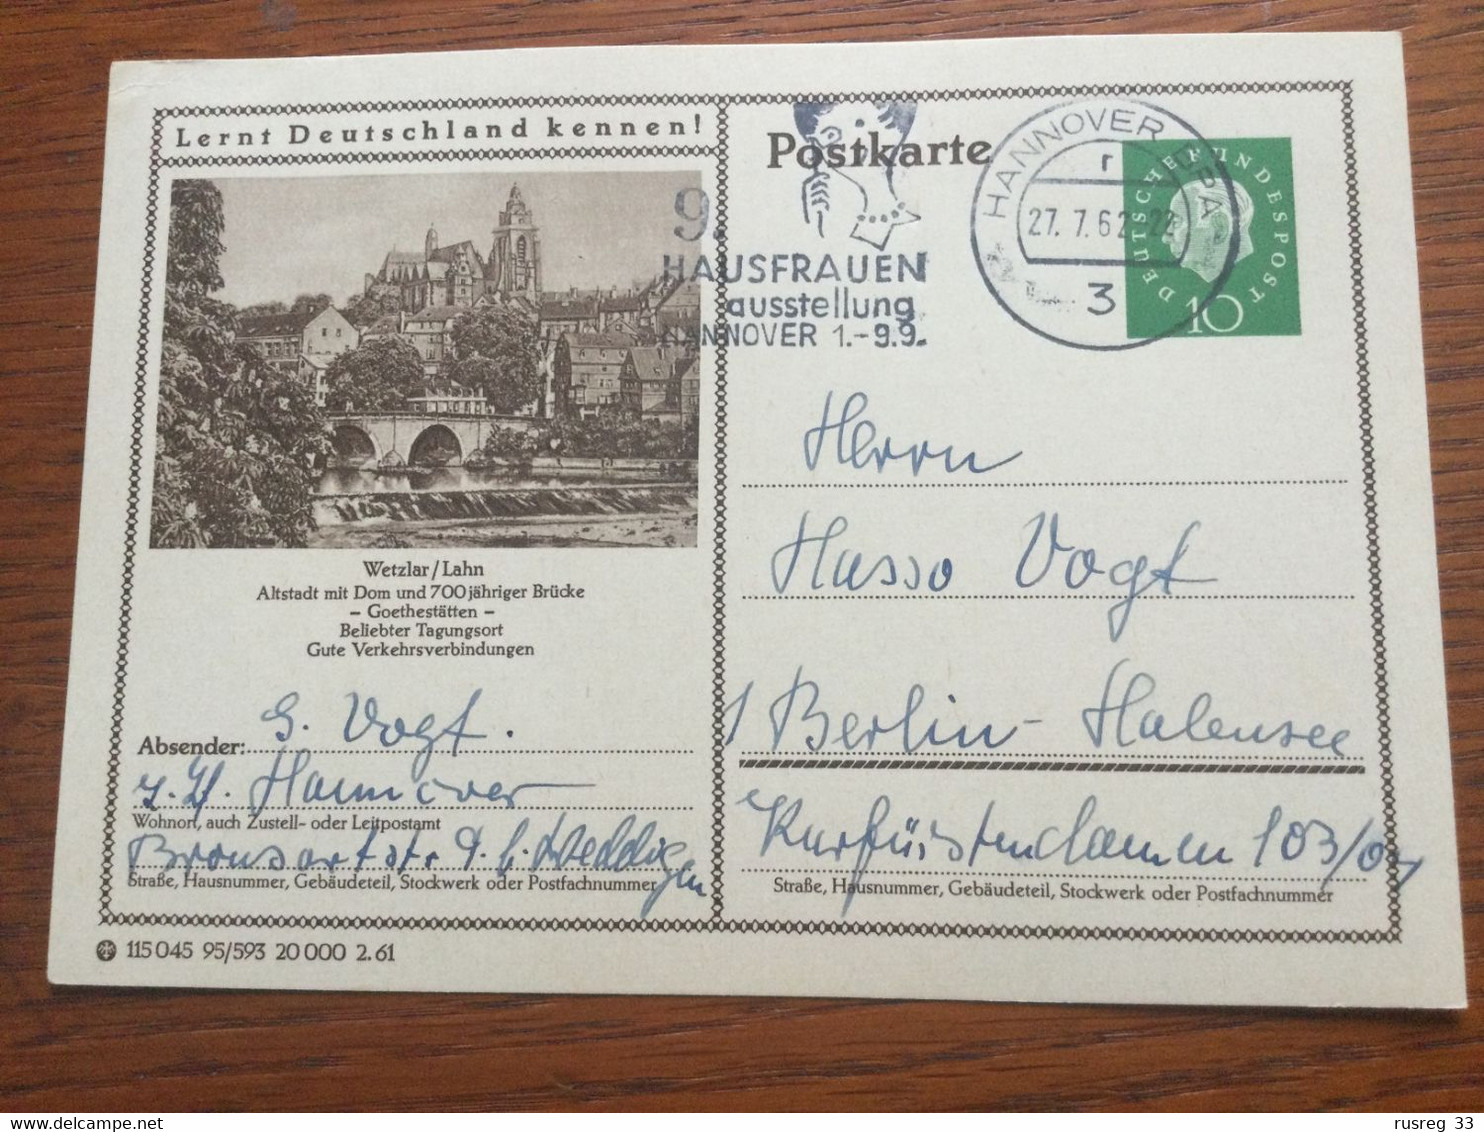 Lernt Deutschland kennen!
Wetzlar/Lahn
Altstadt mit Dom und 700jähriger Brücke
– Goethestätten –
Beliebter Tagungsort
Gute Verkehrsverbindungen
G. Vogt.
Absender:
z. Zt. Hannover
Wohnort, auch Zustell- oder Leitpostamt
Bronsartstr. 9. b. Weddigen
Straße, Hausnummer, Gebäudeteil, Stockwerk oder Postfachnummer
115 045 95/593 20 000 2.61
Postkarte
9.
HAUSFRAUEN
ausstellung
HANNOVER 1.-9.9.
HANNOVER
r
27. 7. 62-22
3
DEUTSCHE BUNDESPOST
10
Herrn
Hasso Vogt
1 Berlin-Halensee
Kurfürstendamm 103/04
Straße, Hausnummer, Gebäudeteil, Stockwerk oder Postfachnummer
rusreg 33